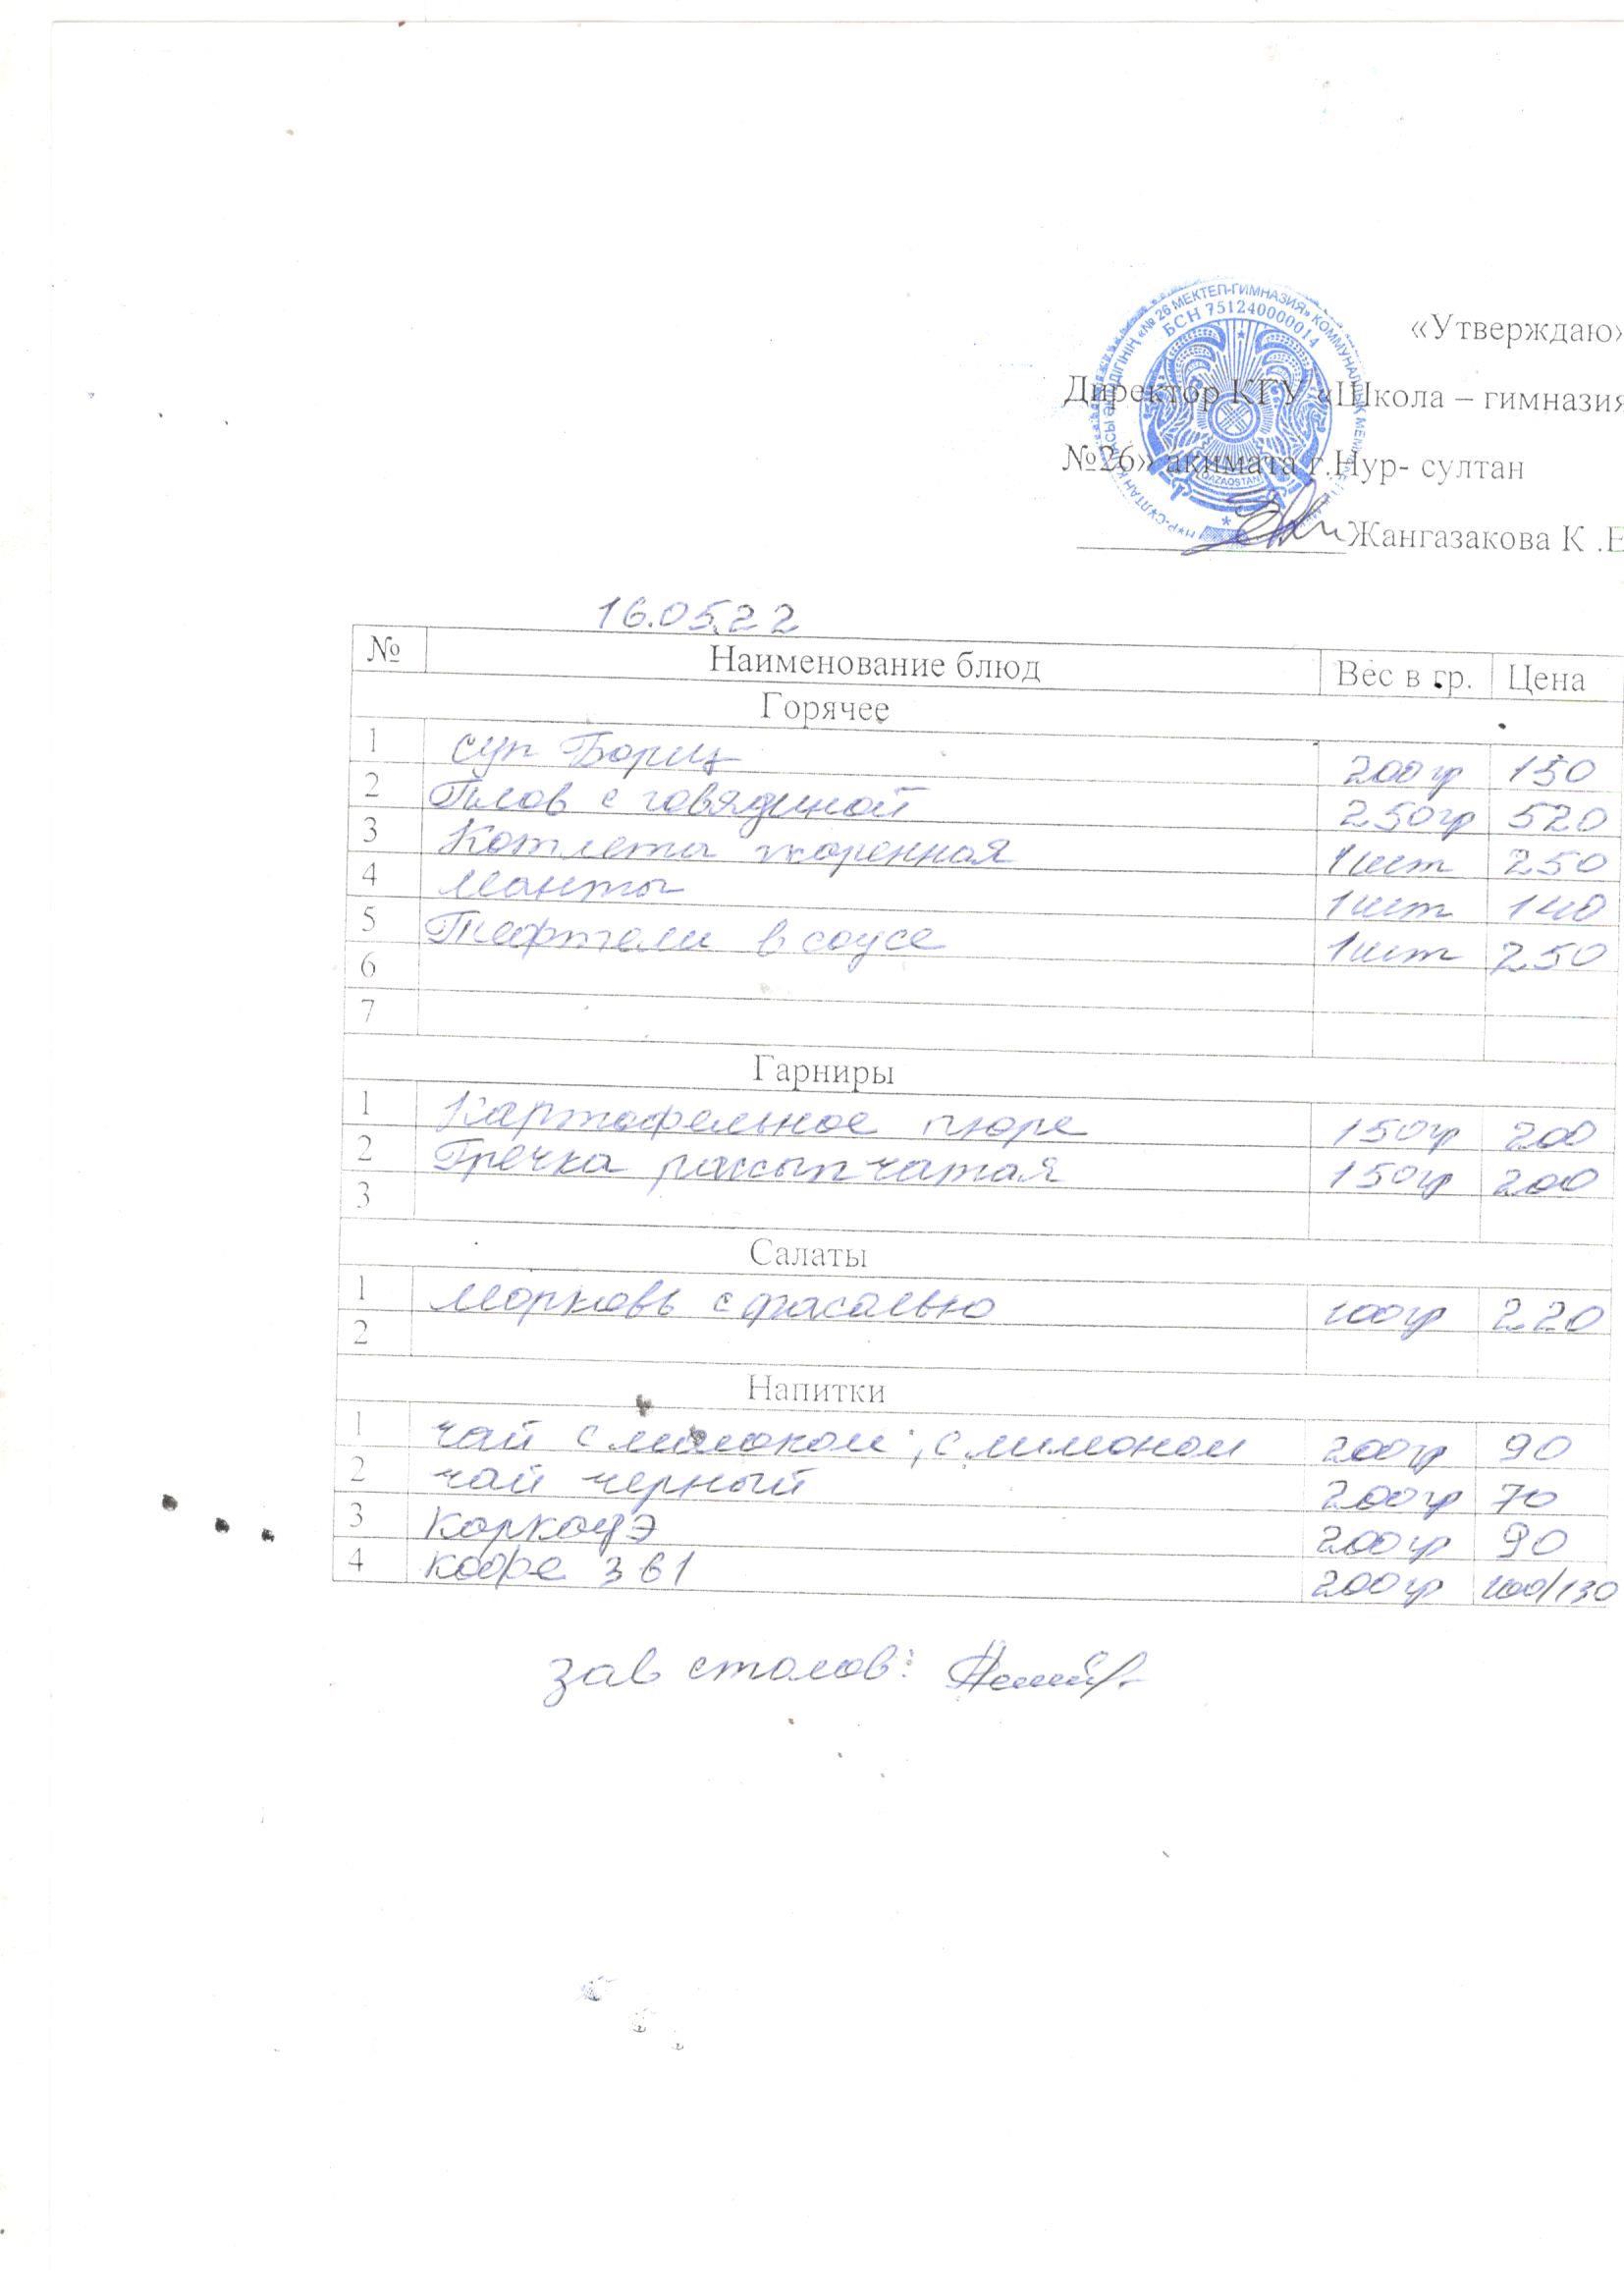 «№ 26 МЕКТЕП-ГИМНАЗИЯ» КОММУНАЛДЫҚ
БСН 751240000014
QAZAQSTAN
«Утверждаю»
Директор КГУ «Школа – гимназия
№26» акимата г.Нур- султан
Жангазакова К .Е
16.05.22
№ Наименование блюд Вес в гр. Цена
Горячее
1 суп Борщ 200гр 150
2 Плов с говядиной 250гр 520
3 Котлета жаренная 1шт 250
4 Манты 1шт 140
5 Тефтели в соусе 1шт 250
6
7
Гарниры
1 Картофельное пюре 150гр 200
2 Гречка рассыпчатая 150гр 200
3
Салаты
1 Морковь с фасолью 100гр 220
2
Напитки
1 чай с молоком, с лимоном 200гр 90
2 чай черный 200гр 70
3 каркадэ 200гр 90
4 кофе 3 в 1 200гр 100/130
зав столов: